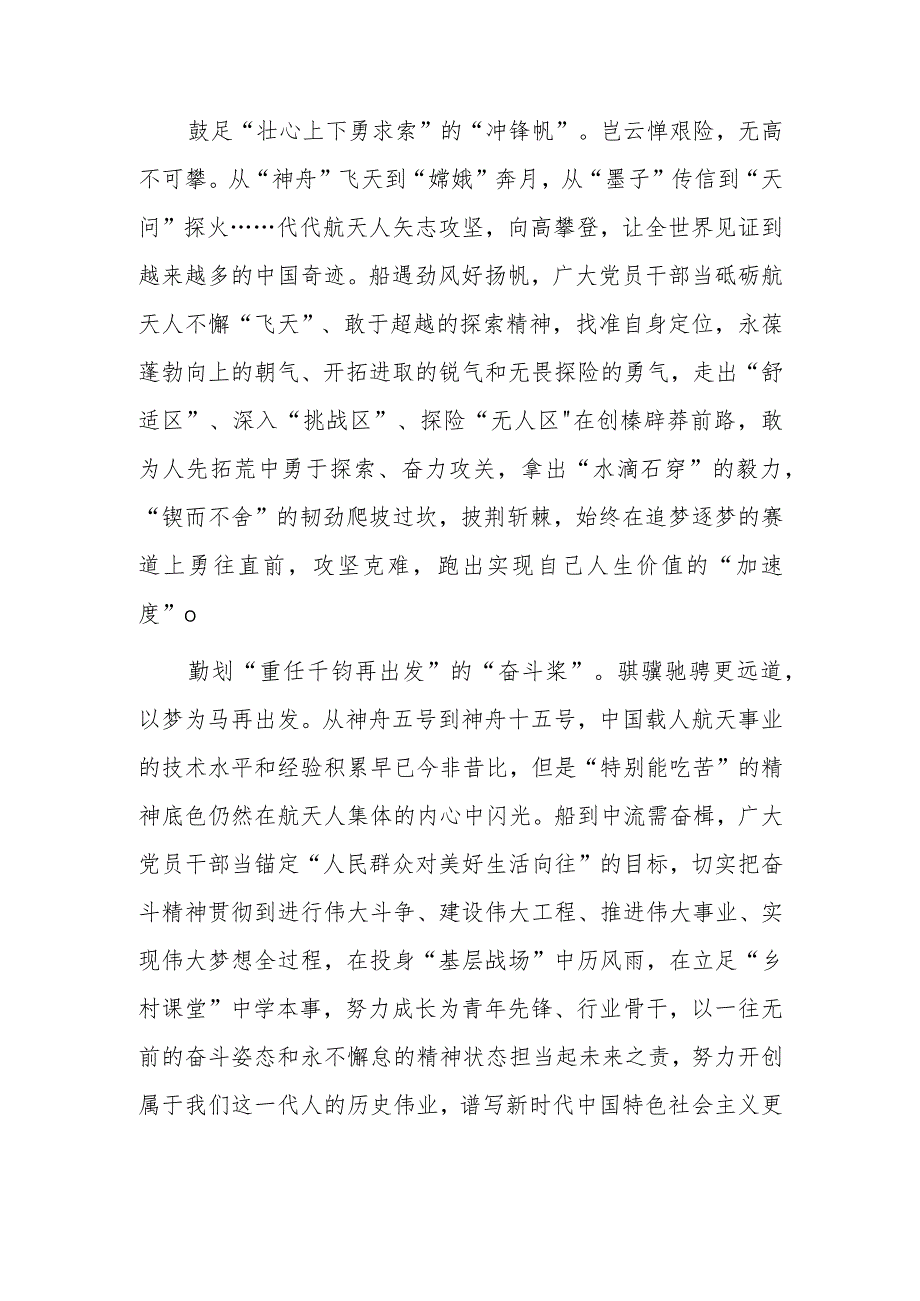 鼓足“壮心上下勇求索”的“冲锋帆”。岂云惮艰险，无高
不可攀。从“神舟”飞天到“嫦娥”奔月，从“墨子”传信到“天
问”探火……代代航天人矢志攻坚，向高攀登，让全世界见证到
越来越多的中国奇迹。船遇劲风好扬帆，广大党员干部当砥砺航
天人不懈“飞天”、敢于超越的探索精神，找准自身定位，永葆
蓬勃向上的朝气、开拓进取的锐气和无畏探险的勇气，走出“舒
适区”、深入“挑战区”、探险“无人区"在创榛辟莽前路，敢
为人先拓荒中勇于探索、奋力攻关，拿出“水滴石穿”的毅力，
“锲而不舍”的韧劲爬坡过坎，披荆斩棘，始终在追梦逐梦的赛
道上勇往直前，攻坚克难，跑出实现自己人生价值的“加速
度”o
勤划“重任千钧再出发”的“奋斗桨”。骐骥驰骋更远道，
以梦为马再出发。从神舟五号到神舟十五号，中国载人航天事业
的技术水平和经验积累早已今非昔比，但是“特别能吃苦”的精
神底色仍然在航天人集体的内心中闪光。船到中流需奋楫，广大
党员干部当锚定“人民群众对美好生活向往”的目标，切实把奋
斗精神贯彻到进行伟大斗争、建设伟大工程、推进伟大事业、实
现伟大梦想全过程，在投身“基层战场”中历风雨，在立足“乡
村课堂”中学本事，努力成长为青年先锋、行业骨干，以一往无
前的奋斗姿态和永不懈怠的精神状态担当起未来之责，努力开创
属于我们这一代人的历史伟业，谱写新时代中国特色社会主义更